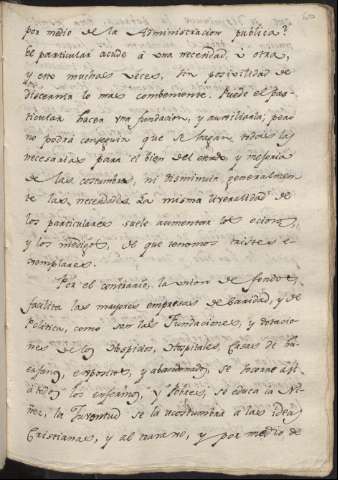 por medio de la Administracion publica?
El particular acude à una necesidad ù otra,
y este muchas veces, sin posivilidad de
discernir lo mas combeniente. Puede el par-
ticular hacer vna fundacion, y auxîliarla; pero
no podrá conseguir que se hagan todas las
necesarias para el bien del estado, y mejoria
de las costumbres, ni disminuir generalmen
te las necesidades. La misma liveralidad de
los particulares suele aumentar los ociosos,
y los mendigos, de que tenemos tristes e-
xemplares.
Por el contrario, la vnion de fondos,
facilita las mayores empresas de Caridad, y de
Politica, como son las Fundaciones, y dotacio
nes de los Hospicios, Hospitales, Casas de hu-
erfanos, expositos, y abandonados, se socorre asi
à todos los enfermos, y Pobres, se educa la Ni-
ñez, la Juventud se la acostumbra à las ideas
Cristianas, y al travajo, y por medio de